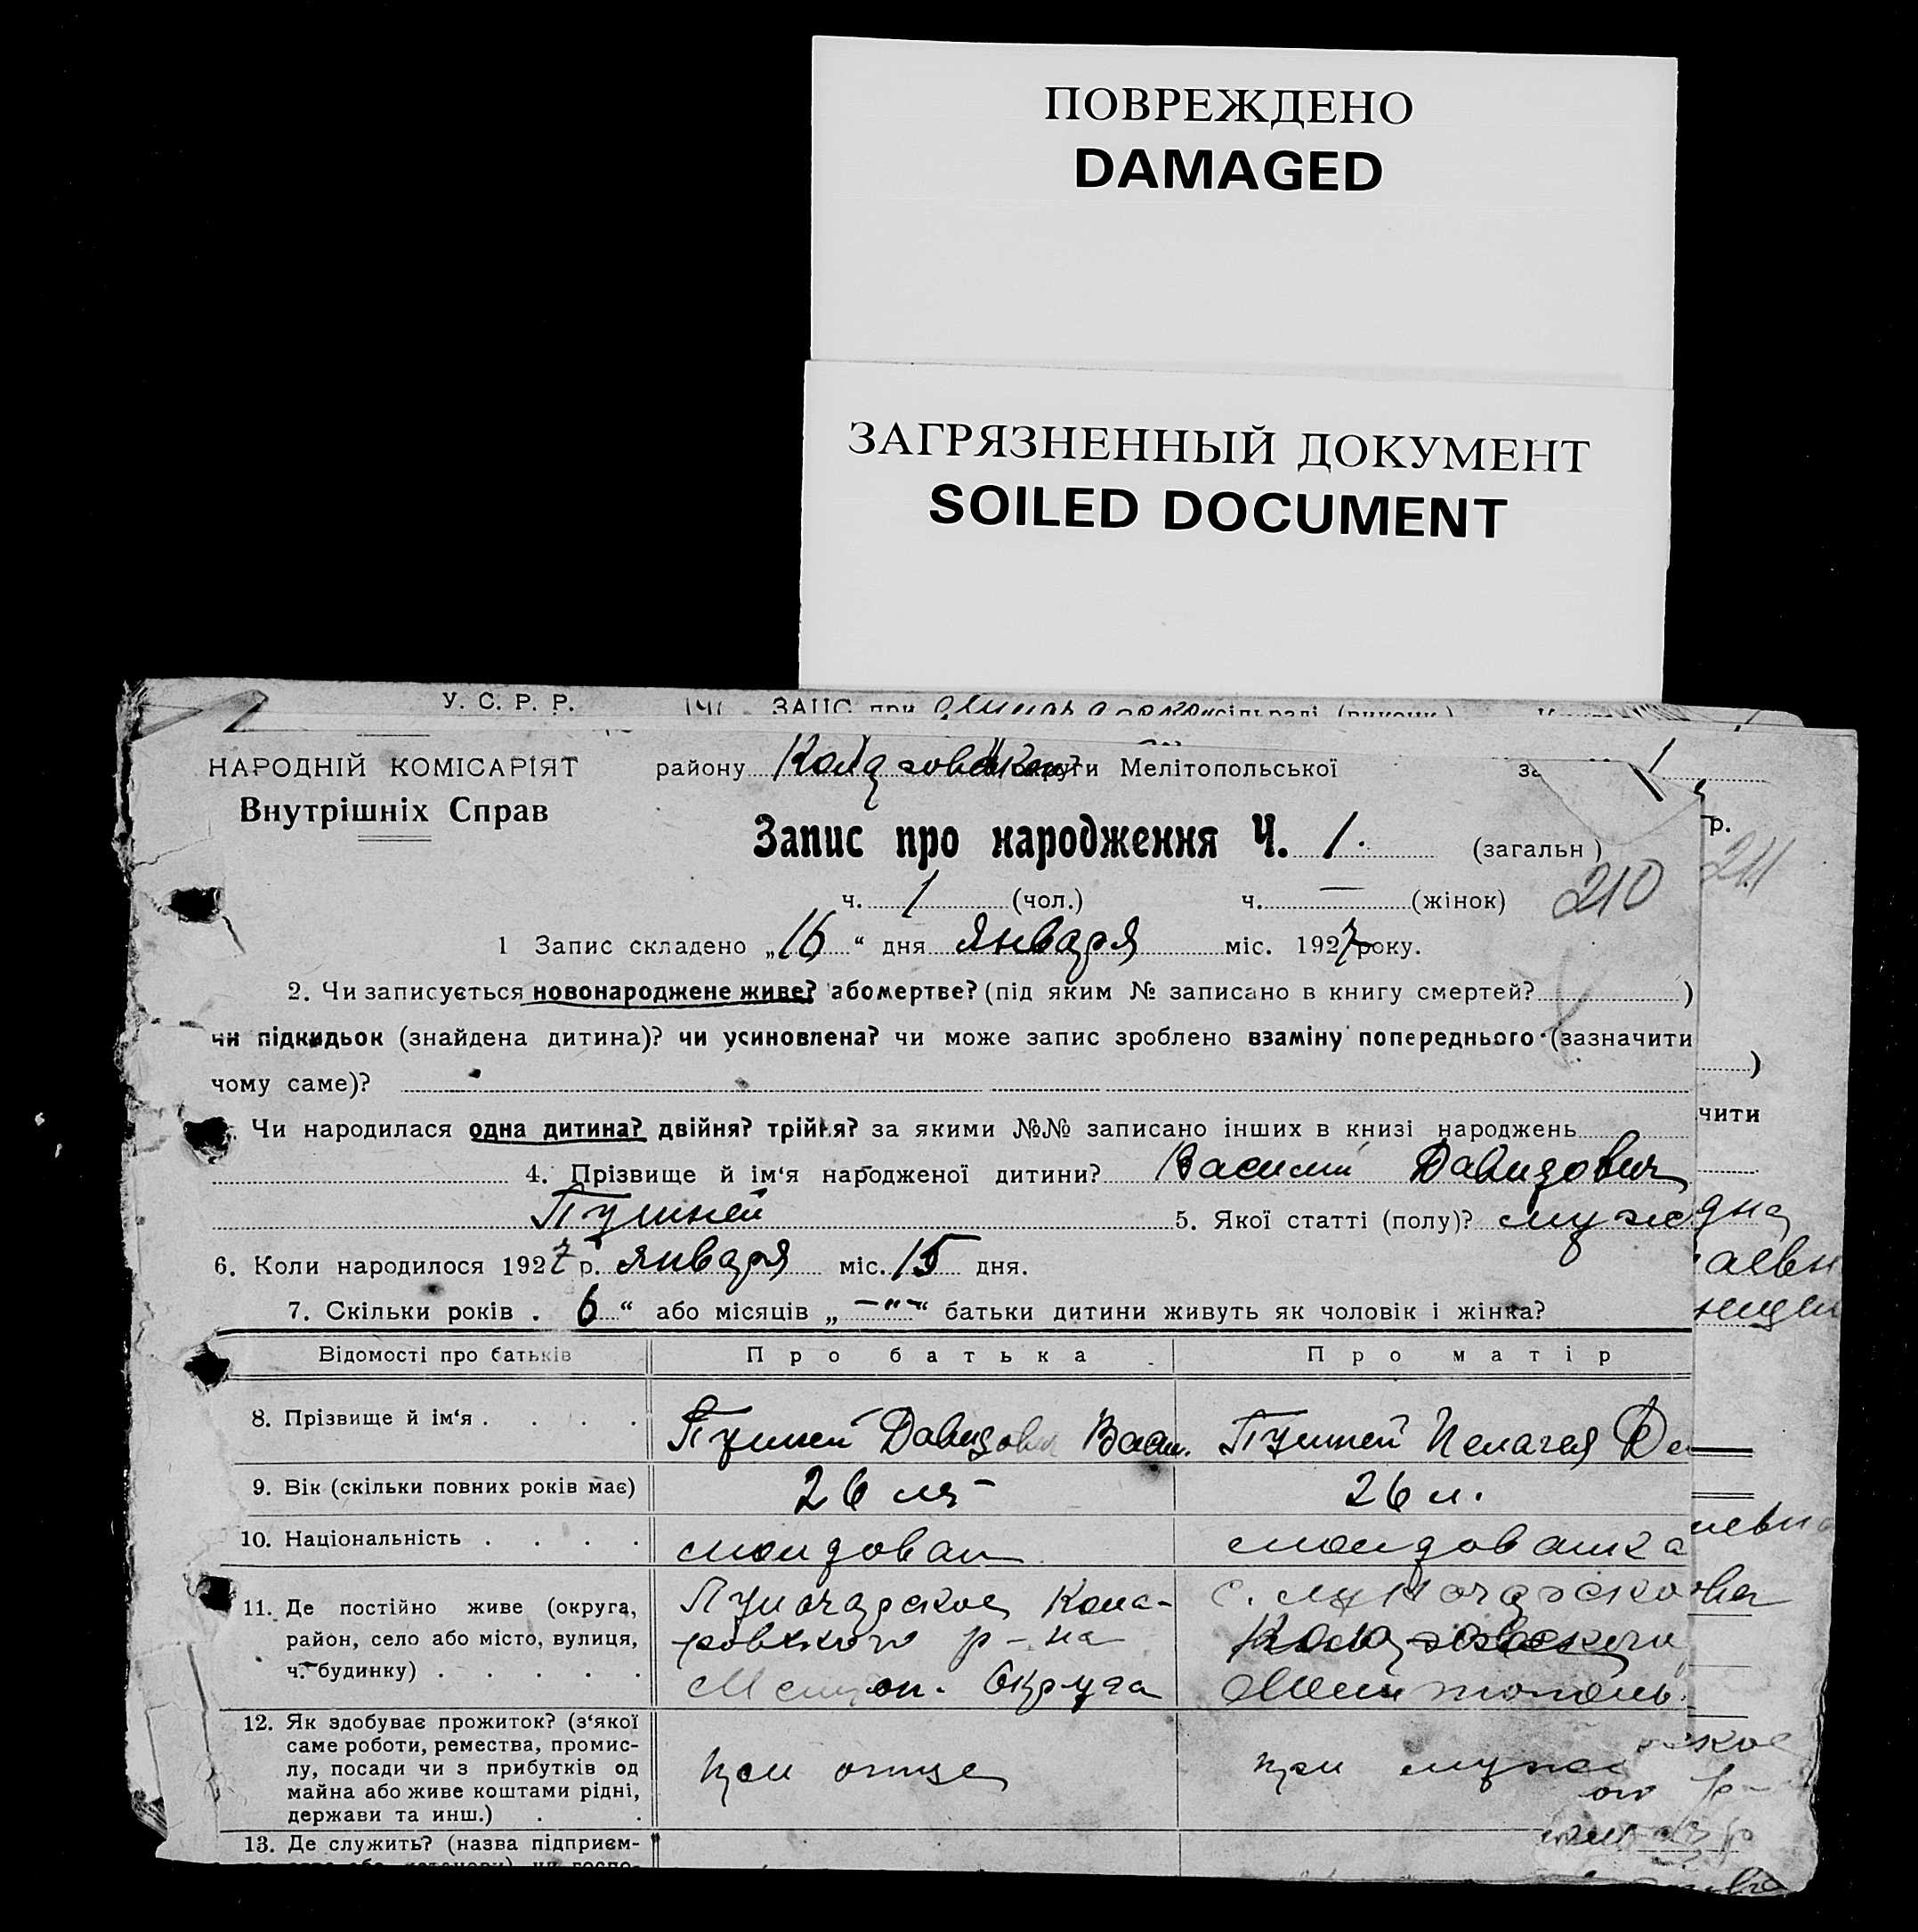 ПОВРЕЖДЕНО
DAMAGED
ЗАГРЯЗНЕННЫЙ ДОКУМЕНТ
SOILED DOCUMENT
У. С. Р. Р.
ЗАГС при
НАРОДНІЙ КОМІСАРІЯТ
району округи Мелітопольської 1
Внутрішніх Справ
р.
Запис про народження Ч. 1. (загальн)
211
ч. 1 (чол.) ч. — (жінок) 210
1 Запис складено „16“ дня января міс. 1927 року.
2. Чи записується новонароджене живе? або мертве? (під яким № записано в книгу смертей? )
чи підкидьок (знайдена дитина)? чи усиновлена? чи може запис зроблено взаміну попереднього (зазначити
чому саме)?
)
чити
Чи народилася одна дитина? двійня? трійня? за якими №№ записано інших в книзі народжень
4. Прізвище й ім‘я народженої дитини? Василий Давидович
Пушней 5. Якої статті (полу)? муж
6. Коли народилося 1927 р. января міс. 15 дня.
7. Скільки років . 6 “ або місяців „ —"— “ батьки дитини живуть як чоловік і жінка?
Відомості про батьків Про батька Про матір
8. Прізвище й ім‘я . . . . Пушней Давид Васи. Пушней Пелагея
9. Вік (скільки повних років має) 26 лет 26 л.
10. Національність . . . . молдован молдованка
11. Де постійно живе (округа, Луначарское Кола- с. Луначарско
район, село або місто, вулиця, ровского р-на
ч. будинку) . . . . . Мелитоп. Округа Мелитополь.
12. Як здобуває прожиток? (з‘якої
саме роботи, ремества, промис-
лу, посади чи з прибутків од при отце при муже
майна або живе коштами рідні,
держави та инш.) . .
13. Де служить? (назва підприєм-